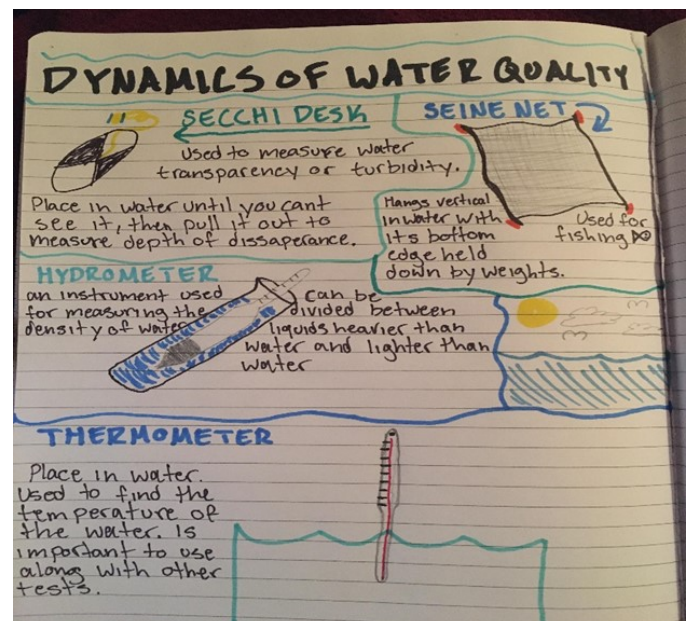 DYNAMICS OF WATER QUALITY
SECCHI DESK
Used to measure water
transparency or turbidity.
Place in water until you cant
see it, then pull it out to
measure depth of dissaperance.
SEINE NET
Hangs vertical
in water with
its bottom
edge held
down by weights.
Used for
fishing
HYDROMETER
an instrument used
for measuring the
density of water
can be
divided between
liquids heavier than
water and lighter than
water
THERMOMETER
Place in water.
Used to find the
temperature of
the water. Is
important to use
along with other
tests.